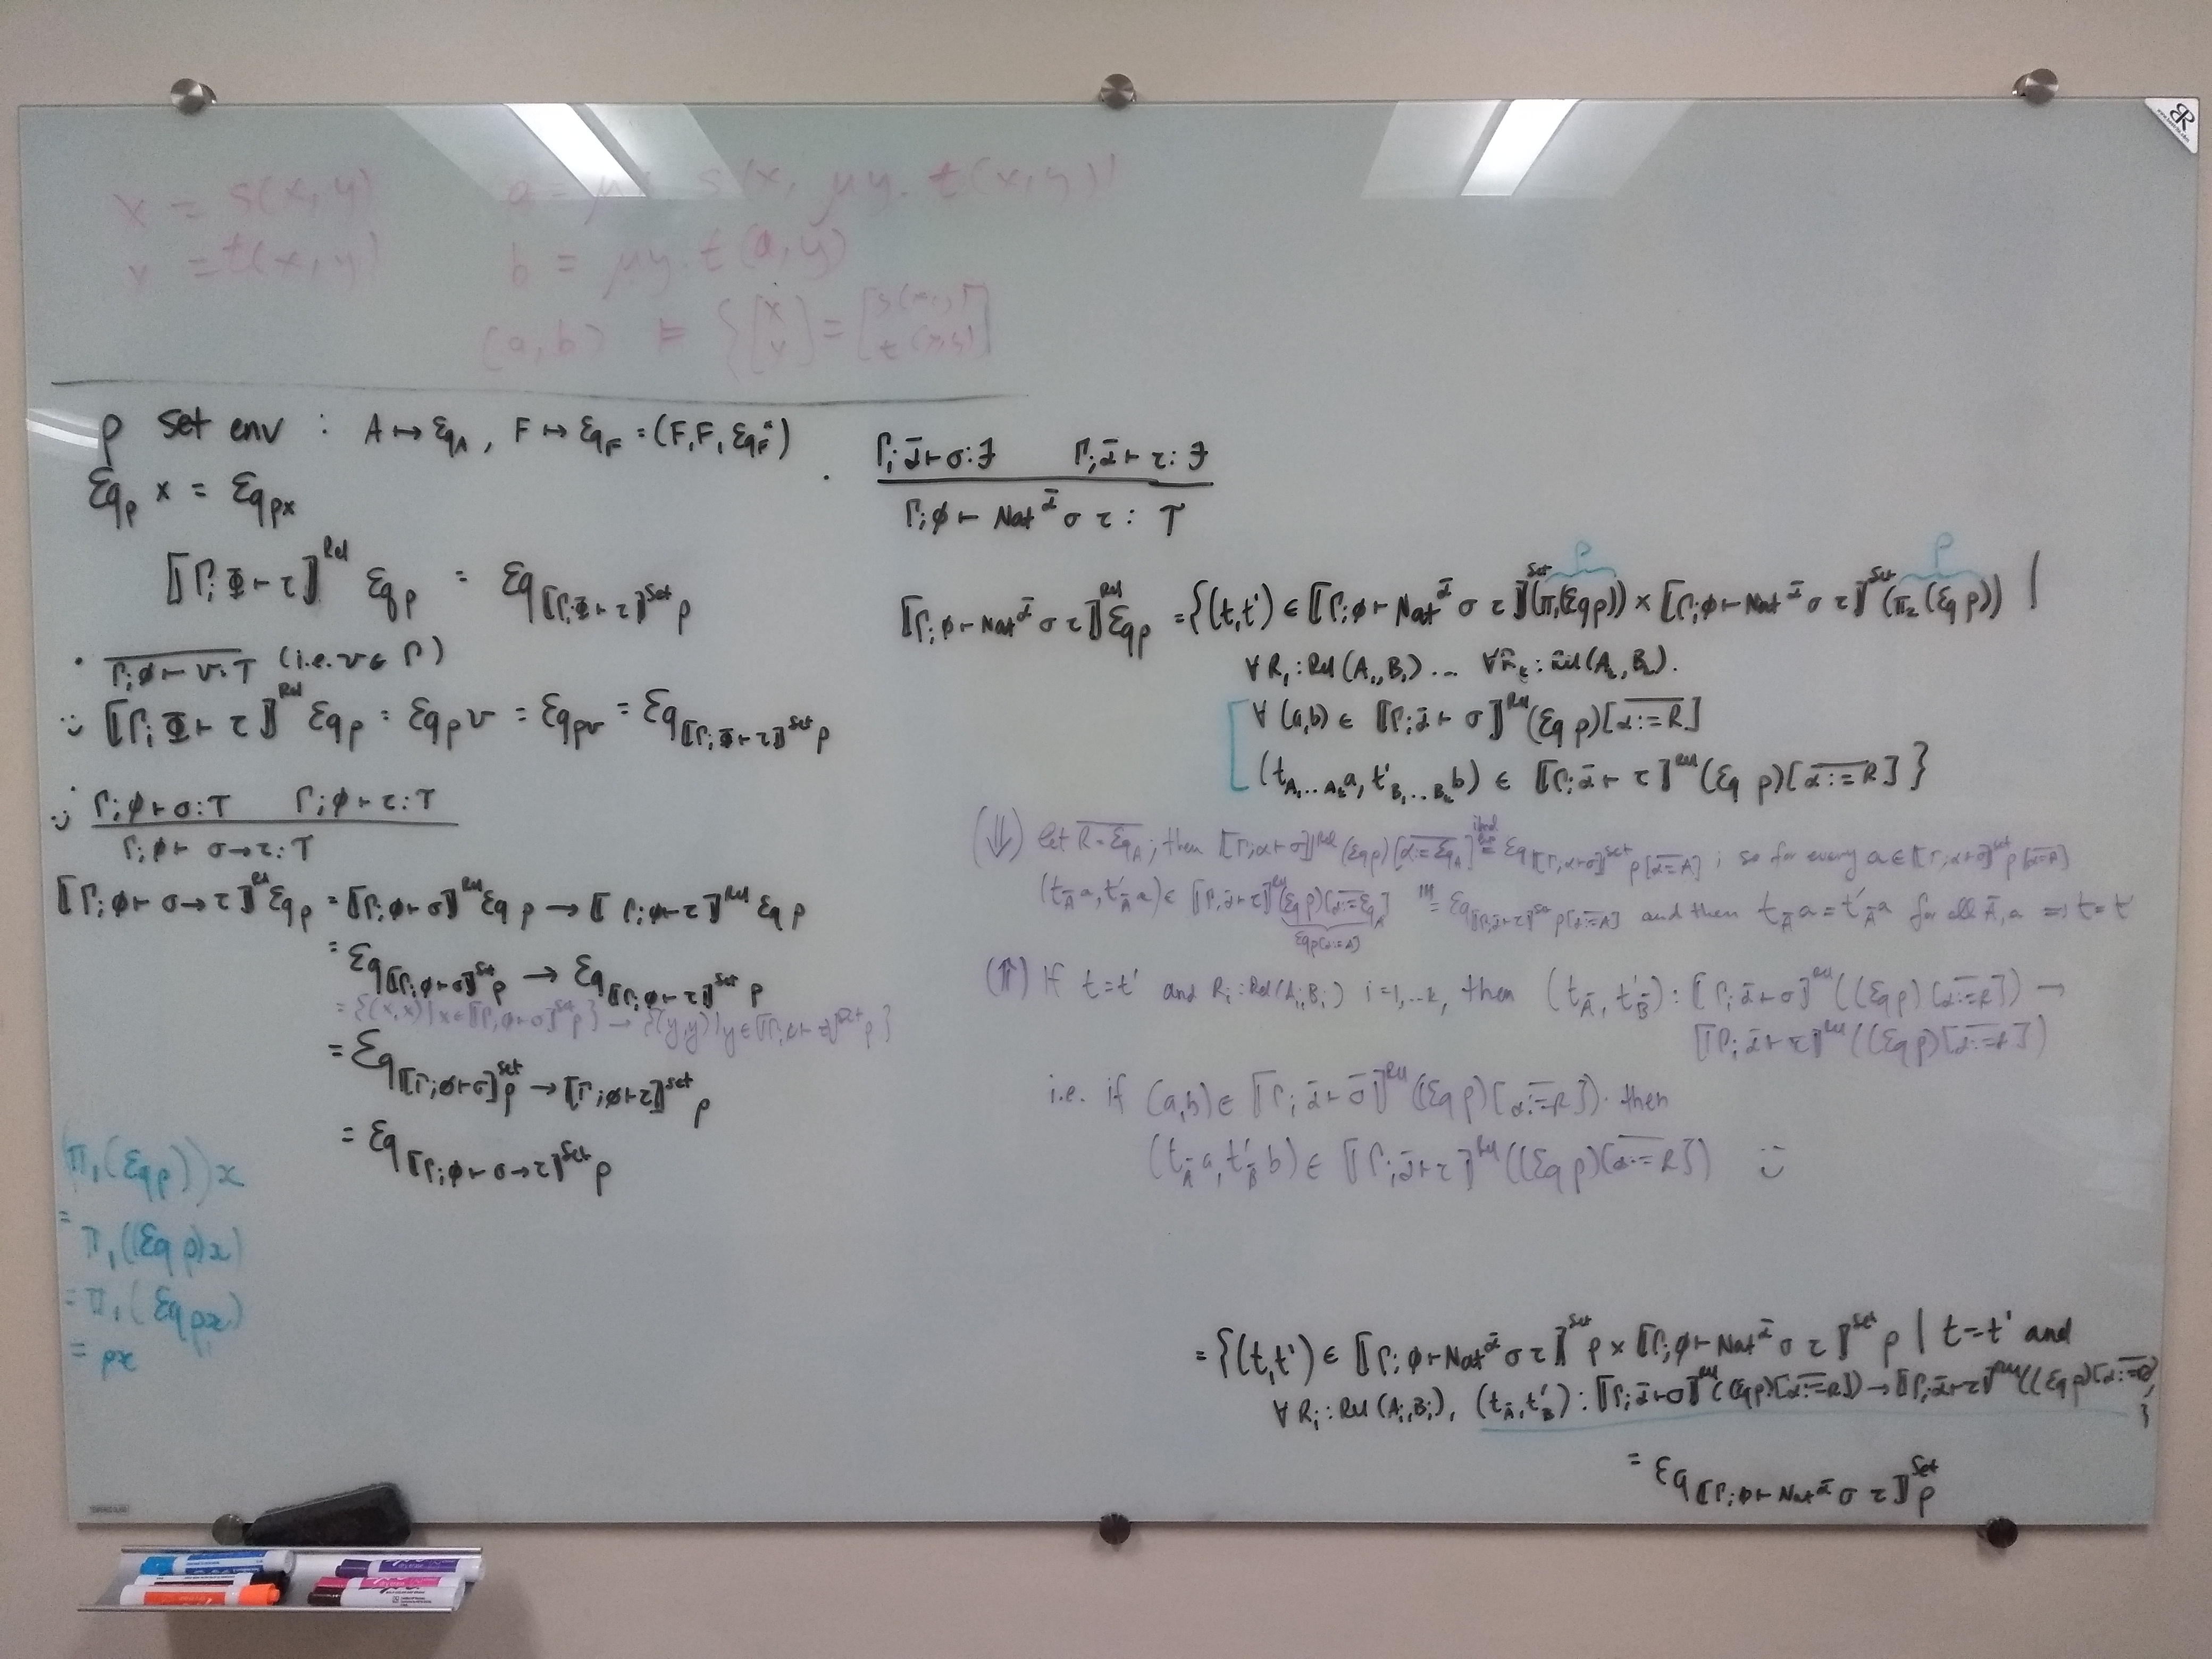 x = s(x,y)
y = t(x,y)
a = μx. s(x, μy. t(x,y))
b = μy. t(a,y)
(a,b) ⊨ { [x y] = [s(x,y) t(x,y)]
ρ set env : A ↦ Eq_A , F ↦ Eq_F = (F,F, Eq_F^*)
Eq_ρ x = Eq_{ρx}
⟦Γ;Φ ⊢ τ⟧^Rel Eq_ρ = Eq_{⟦Γ;Φ⊢τ⟧^Set ρ}
· Γ;∅ ⊢ v:T (i.e. v∈Γ)
⟦Γ;Φ ⊢ τ⟧^Rel Eq_ρ = Eq_ρ v = Eq_{ρv} = Eq_{⟦Γ;Φ⊢τ⟧^Set ρ}
· Γ;∅ ⊢ σ:T Γ;∅ ⊢ τ:T
Γ;∅ ⊢ σ→τ:T
⟦Γ;∅ ⊢ σ→τ⟧^Rel Eq_ρ = ⟦Γ;∅⊢σ⟧^Rel Eq_ρ → ⟦Γ;∅⊢τ⟧^Rel Eq_ρ
= Eq_{⟦Γ;∅⊢σ⟧^Set ρ} → Eq_{⟦Γ;∅⊢τ⟧^Set ρ}
= {(x,x) | x∈⟦Γ;∅⊢σ⟧^Set ρ} → {(y,y) | y∈⟦Γ;∅⊢τ⟧^Set ρ}
= Eq_{⟦Γ;∅⊢σ⟧^Set ρ → ⟦Γ;∅⊢τ⟧^Set ρ}
= Eq_{⟦Γ;∅⊢σ→τ⟧^Set ρ}
(π₁(Eq_ρ))x
= π₁((Eq ρ)x)
= π₁(Eq_{ρx})
= ρx
· Γ;ᾱ ⊢ σ:F Γ;ᾱ ⊢ τ:F
Γ;∅ ⊢ Nat^ᾱ σ τ : T
ρ ρ
⟦Γ;∅⊢Nat^ᾱ σ τ⟧^Rel Eq_ρ = {(t,t') ∈ ⟦Γ;∅⊢Nat^ᾱ σ τ⟧^Set (π₁(Eq ρ)) × ⟦Γ;∅⊢Nat^ᾱ σ τ⟧^Set (π₂(Eq ρ)) |
∀R₁:Rel(A₁,B₁) ... ∀R_k:Rel(A_k,B_k).
∀(a,b) ∈ ⟦Γ;ᾱ⊢σ⟧^Rel (Eq ρ)[\overline{α:=R}]
(t_{A₁...A_k} a, t'_{B₁...B_k} b) ∈ ⟦Γ;ᾱ⊢τ⟧^Rel (Eq ρ)[\overline{α:=R}] }
(⇓) let \overline{R=Eq_A}; then ⟦Γ;α⊢σ⟧^Rel (Eq ρ)[\overline{α:=Eq_A}] = Eq_{⟦Γ;α⊢σ⟧^Set ρ[\overline{α:=A}]} ; so for every a∈⟦Γ;α⊢σ⟧^Set ρ[\overline{α:=A}]
(t_Ā a, t'_Ā a) ∈ ⟦Γ;ᾱ⊢τ⟧^Rel (Eq ρ)[\overline{α:=Eq_A}] =^{IH} Eq_{⟦Γ;ᾱ⊢τ⟧^Set ρ[\overline{α:=A}]} and then t_Ā a = t'_Ā a for all Ā, a ⟹ t=t'
Eq_{ρ[α:=A]}
(⇑) If t=t' and R_i:Rel(A_i,B_i) i=1,..k, then (t_Ā, t'_B̄) : ⟦Γ;ᾱ⊢σ⟧^Rel ((Eq ρ)[\overline{α:=R}]) →
⟦Γ;ᾱ⊢τ⟧^Rel ((Eq ρ)[\overline{α:=R}])
i.e. if (a,b) ∈ ⟦Γ;ᾱ⊢σ⟧^Rel ((Eq ρ)[\overline{α:=R}]). then
(t_Ā a, t'_B̄ b) ∈ ⟦Γ;ᾱ⊢τ⟧^Rel ((Eq ρ)[\overline{α:=R}])
= {(t,t') ∈ ⟦Γ;∅⊢Nat^ᾱ σ τ⟧^Set ρ × ⟦Γ;∅⊢Nat^ᾱ σ τ⟧^Set ρ | t=t' and
∀R_i:Rel(A_i,B_i), (t_Ā, t'_B̄) : ⟦Γ;ᾱ⊢σ⟧^Rel ((Eq ρ)[\overline{α:=R}]) → ⟦Γ;ᾱ⊢τ⟧^Rel ((Eq ρ)[\overline{α:=R}]) }
= Eq_{⟦Γ;∅⊢Nat^ᾱ σ τ⟧^Set ρ}